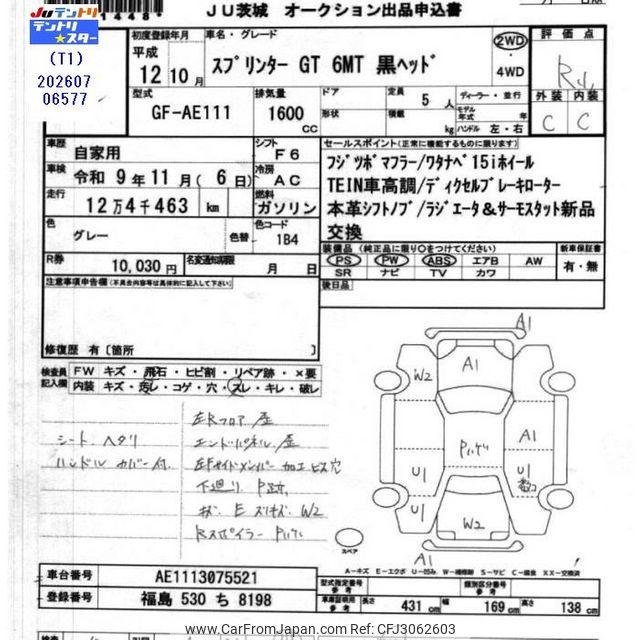 JU茨城 オークション出品申込書
JUテントリ
テントリ★スター
(T1)
202607
06577
1448
初度登録年月
平成
12 10月
車名・グレード
スプリンター GT 6MT 黒ヘッド
2WD
・
4WD
評価点
R
外装 内装
C C
型式
GF-AE111
排気量
1600
cc
ドア
形状
定員
5 人
積載
kg
ディーラー・並行
モデル年式 年
ハンドル 左・右
車歴
自家用
シフト
F6
車検
令和 9年 11月 ( 6日)
冷房
AC
走行
12万4千463 km
燃料
ガソリン
色
グレー
色替
色コード
1B4
セールスポイント(正常に機能するものに限ります)
フジツボマフラー/ワタナベ15iホイール
TEIN車高調/ディクセルブレーキローター
本革シフトノブ/ラジエータ&サーモスタット新品
交換
R券
10,030円
名変通知期限
月 日
装備品 (純正品に限り○をつけてください)
PS ・ PW ・ ABS ・ エアB ・ AW
SR ナビ TV カワ
新車保証書
有・無
注意事項申告欄(不具合内容等は具体的に記入して下さい)
後日品
修復歴 有〔箇所 〕
検査員
記入欄
FW キズ・飛石・ヒビ割・リペア跡・×要
内装 キズ・汚レ・コゲ・穴・スレ・キレ・破レ
左Rフロア/歪
シート ヘタリ
エンドパネル/歪
ハンドル カバー付
左Fサイドメンバー 加工ビス穴
下廻り P跡
キズ E スリキズ W2
Rスポイラー Pハゲ
A1
W2
A1
Pハゲ
A1
U1
U1
W2
A1
スペア
A-キズ E-エクボ U-凹み W-補修跡 S-サビ C-腐食 XX-交換済
車台番号
AE1113075521
登録番号
福島 530 ち 8198
型式指定番号
参考
類別区分番号
参考
車庫証明用
参考
長さ 431 cm
幅 169 cm
高さ 138 cm
www.CarFromJapan.com - Ref: CFJ3062603